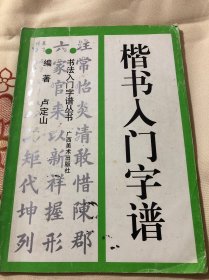 楷书入门字谱
书法入门字谱丛书
广西美术出版社
编著 卢定山
注常怡炎清敢惜陳郡
六家官宋
政新祥握形
矩代坤列